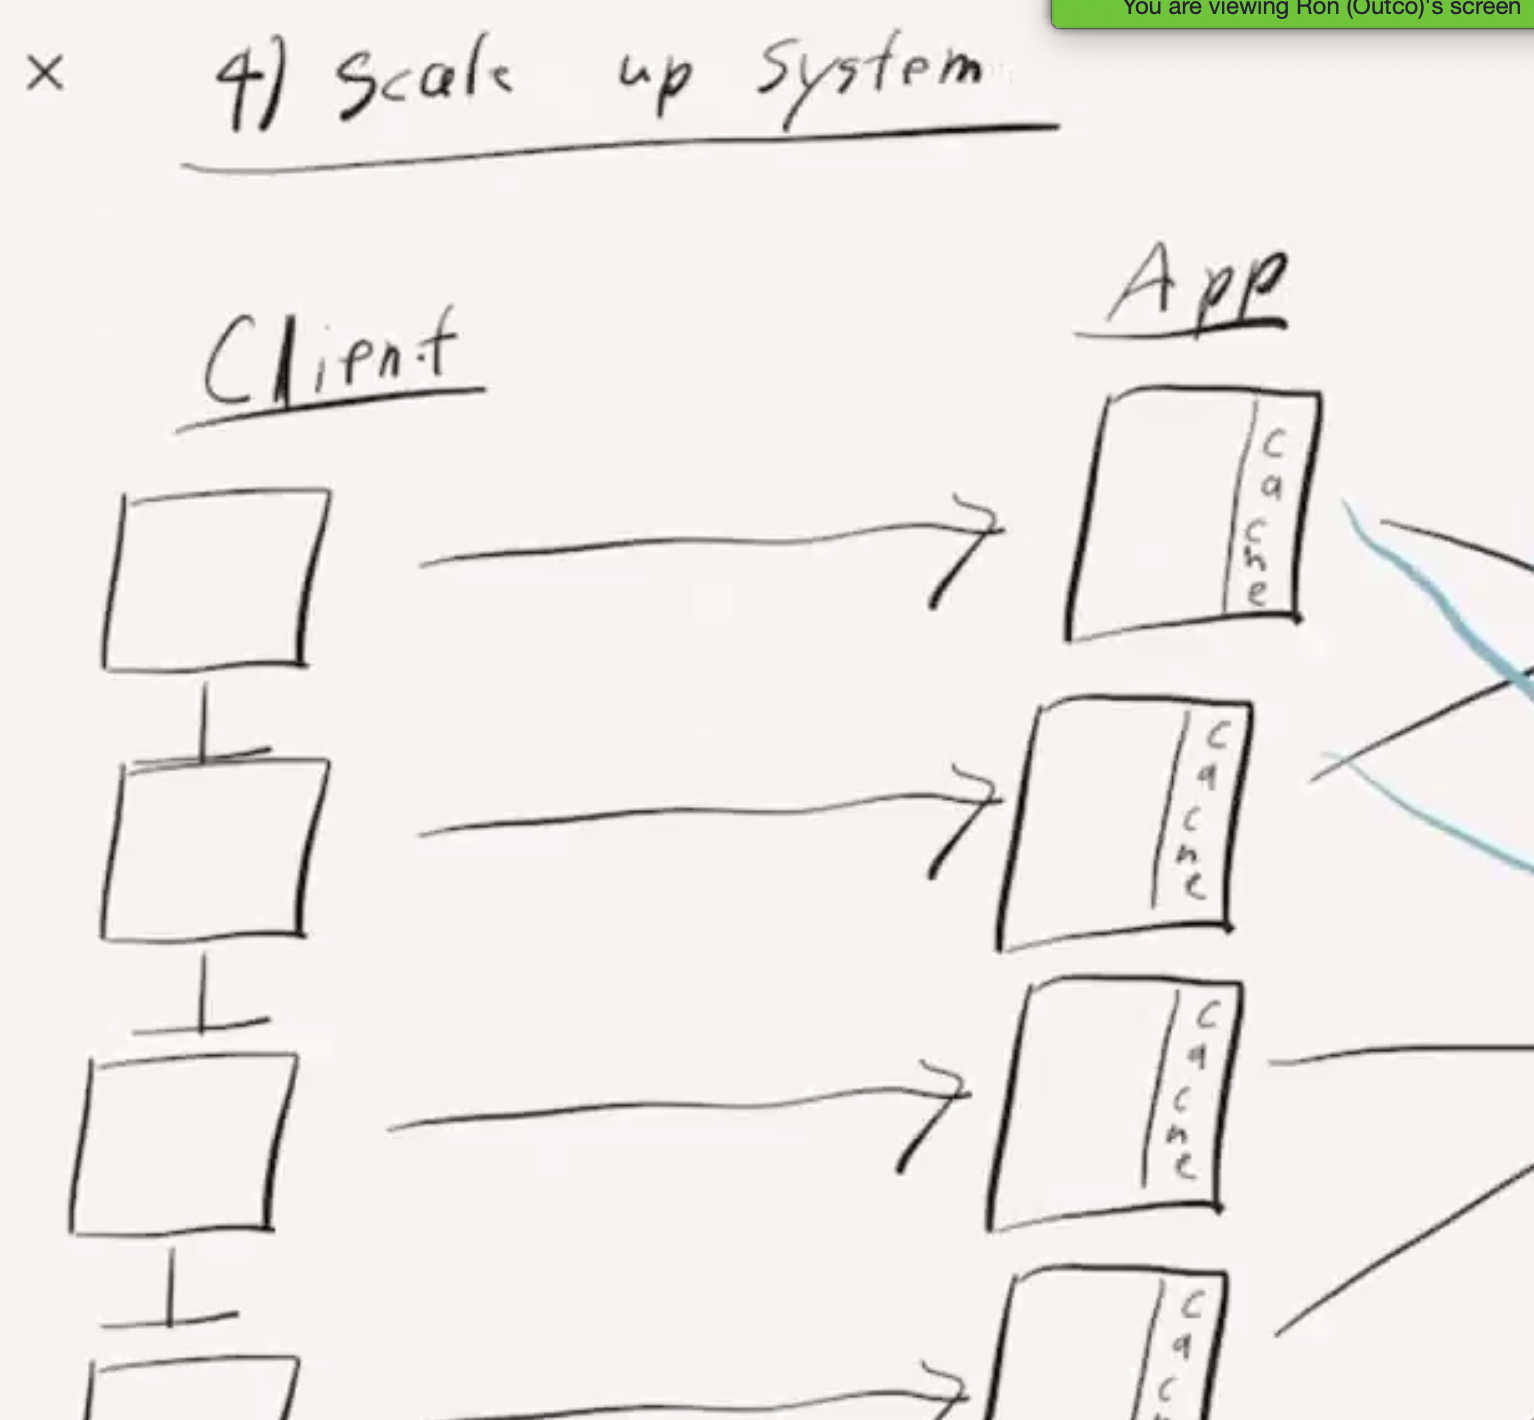 You are viewing Ron (Outco)'s screen
4) Scale up System
App
Client
Cache
Cache
Cache
Cach